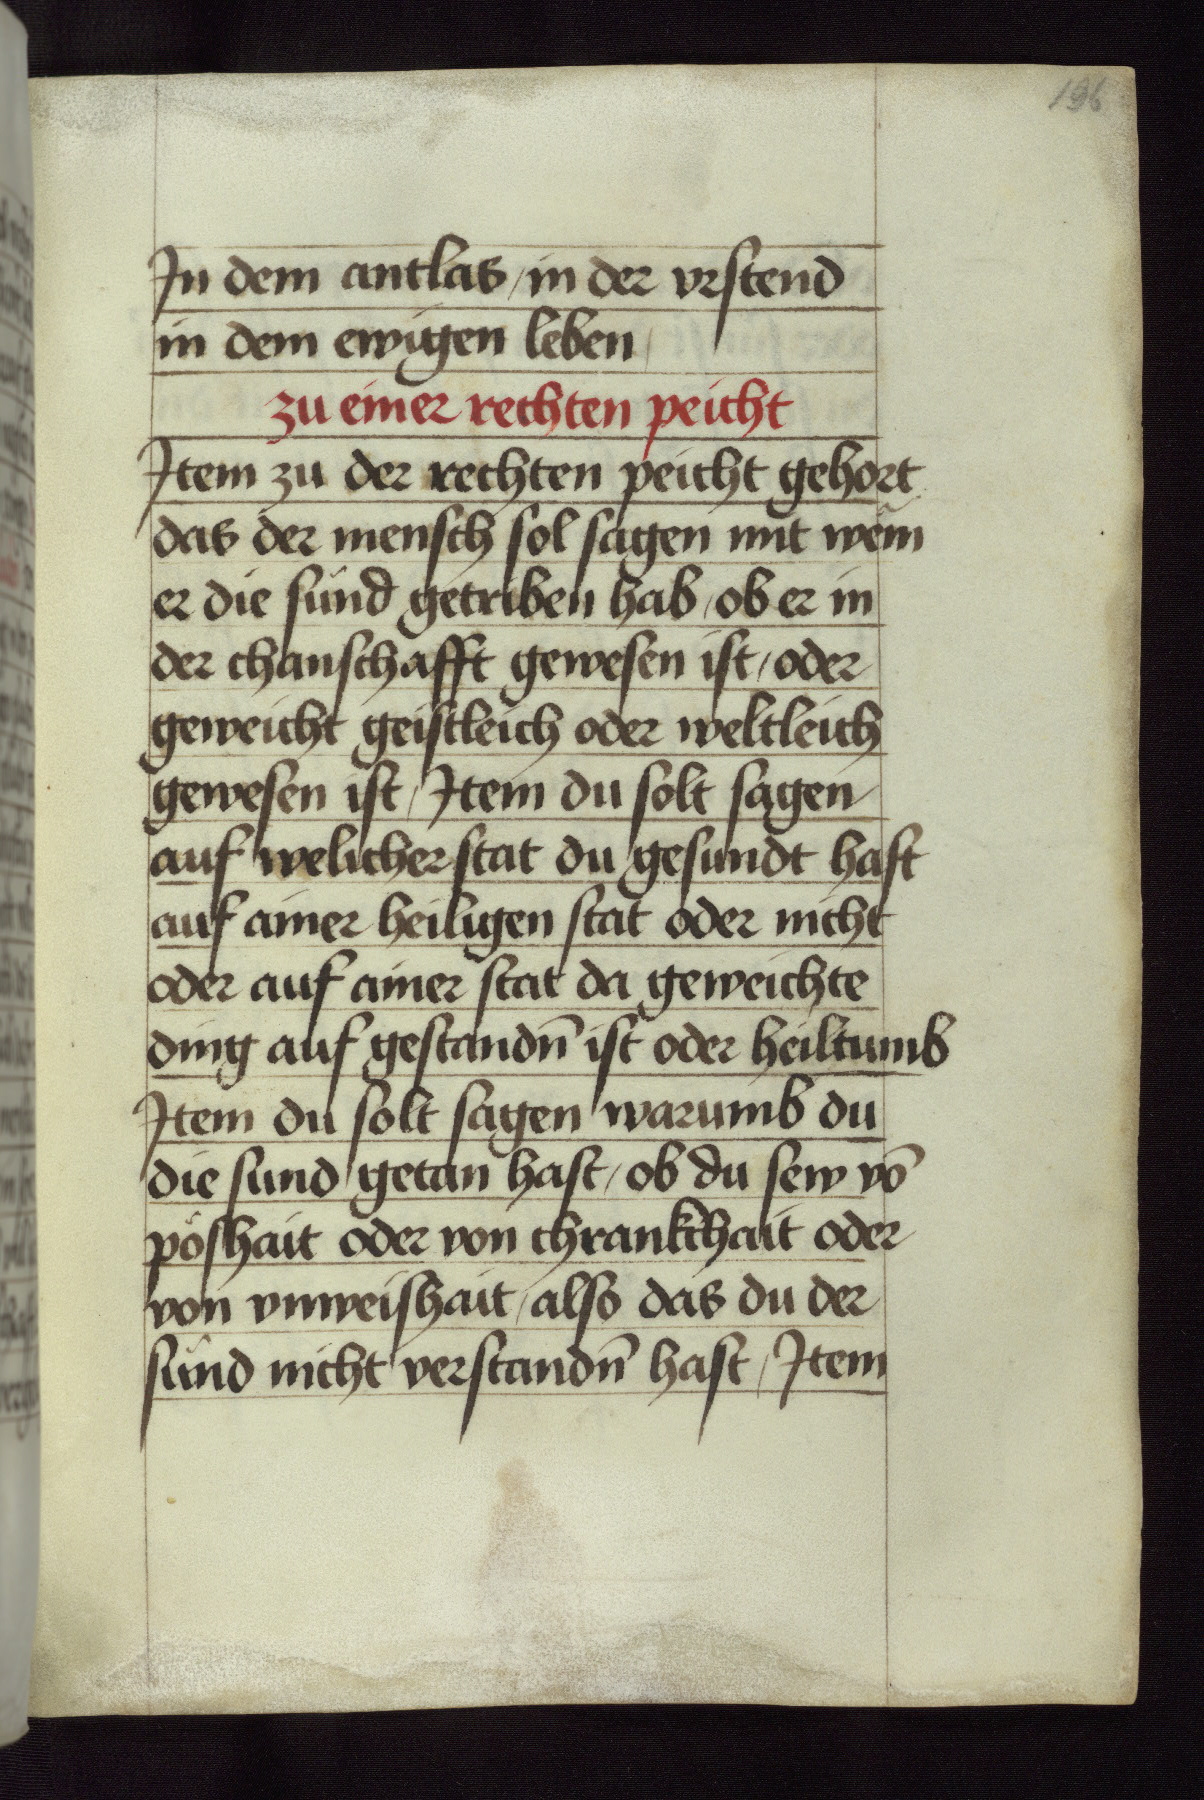 196
In dem antlas / in der vrstend
in dem ewigen leben /
zu einer rechten peicht
Item zu der rechten peicht gehort
das der mensch sol sagen mit wem̃
er die sünd getriben hab / ob er in
der chanschafft gewesen ist / oder
geweicht geistleich oder weltleich
gewesen ist / Item du solt sagen
auf welicher stat du gesundt hast
auf ainer heiligen stat oder nicht
oder auf ainer stat da geweichte
ding auf gestandn̄ ist oder heiltumb
Item du solt sagen warumb du
die sund getan hast / ob du sew vō
pöshait oder von chrankchait oder
von vnweishait / also das du der
sünd nicht verstandn̄ hast / Item